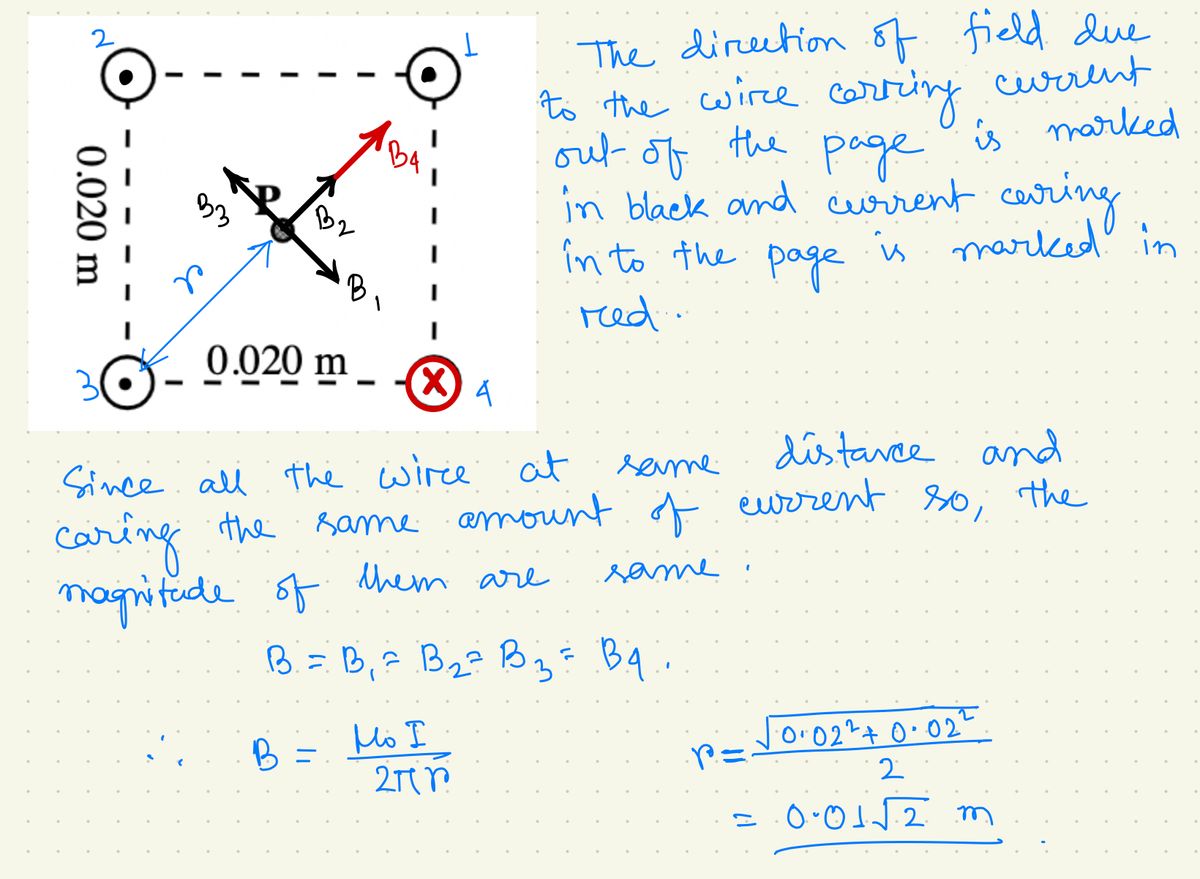 2
1
0.020 m
B3
P
B2
B4
B1
r
3
0.020 m
X
4
The direction of field due
to the wire carring current
out of the page is marked
in black and current caring
in to the page is marked in
red.
Since all the wire at same distance and
caring the same amount of current so, the
magnitude of them are same.
B = B₁ = B₂ = B₃ = B4.
∴ B = μ₀ I / 2π r
r = √0.02² + 0.02² / 2
= 0.01√2 m